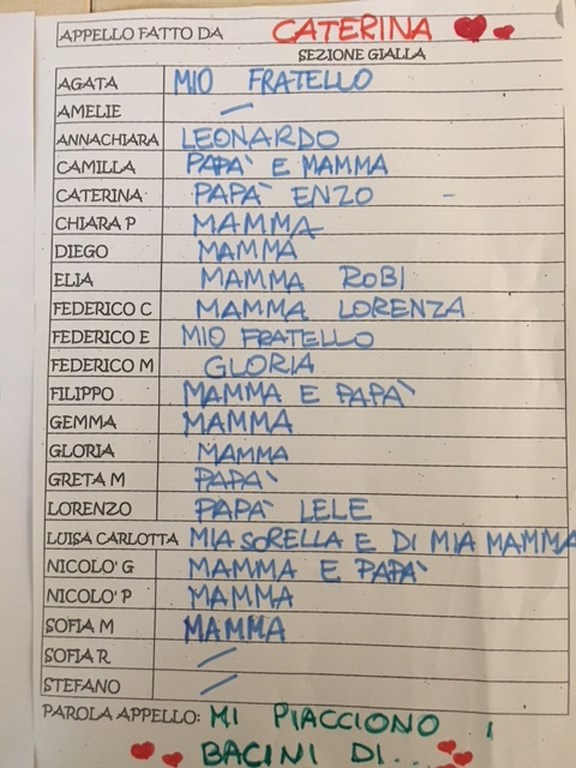 APPELLO FATTO DA CATERINA
SEZIONE GIALLA
AGATA MIO FRATELLO
AMELIE –
ANNACHIARA LEONARDO
CAMILLA PAPA' E MAMMA
CATERINA PAPA' ENZO –
CHIARA P MAMMA
DIEGO MAMMA
ELIA MAMMA ROBI
FEDERICO C MAMMA LORENZA
FEDERICO E MIO FRATELLO
FEDERICO M GLORIA
FILIPPO MAMMA E PAPA'
GEMMA MAMMA
GLORIA MAMMA
GRETA M PAPA'
LORENZO PAPA' LELE
LUISA CARLOTTA MIA SORELLA E DI MIA MAMMA
NICOLO' G MAMMA E PAPA'
NICOLO' P MAMMA
SOFIA M MAMMA
SOFIA R –
STEFANO –
PAROLA APPELLO: MI PIACCIONO I
BACINI DI...